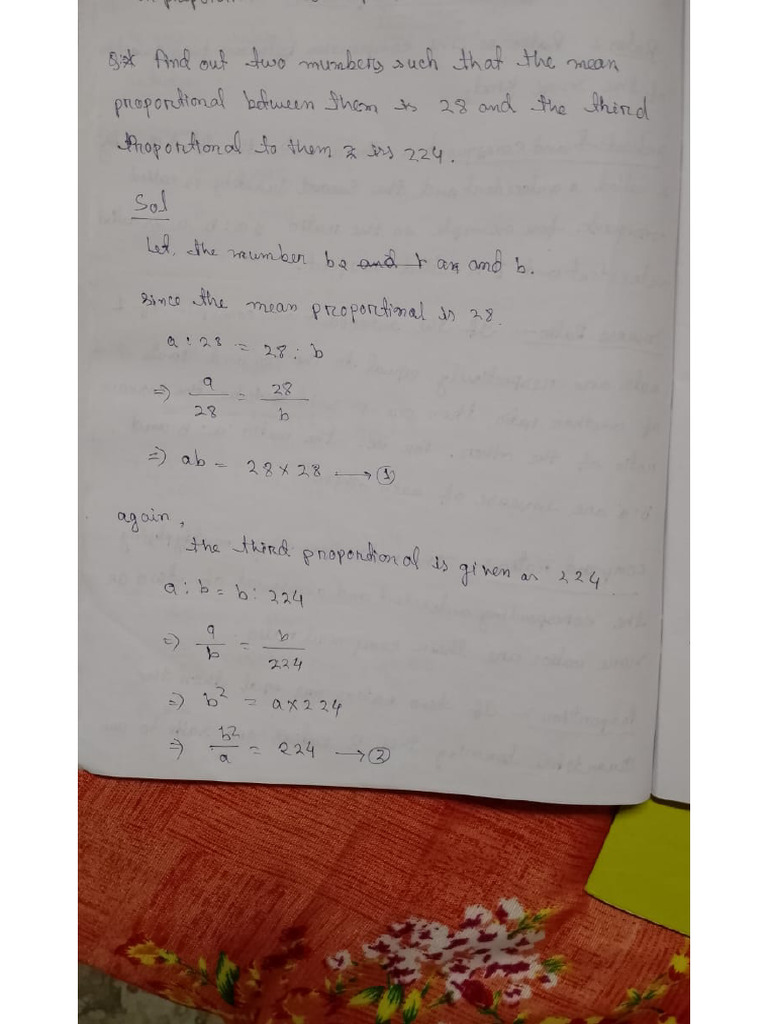 Find out two numbers such that the mean
proportional between them is 28 and the third
Proportional to them is 224.
Sol
Let, the number be a and b.
since the mean proportional is 28.
a : 28 = 28 : b
⇒ a/28 = 28/b
⇒ ab = 28 × 28 → ①
again,
the third proportional is given as 224
a : b = b : 224
⇒ a/b = b/224
⇒ b² = a × 224
⇒ b²/a = 224 → ②